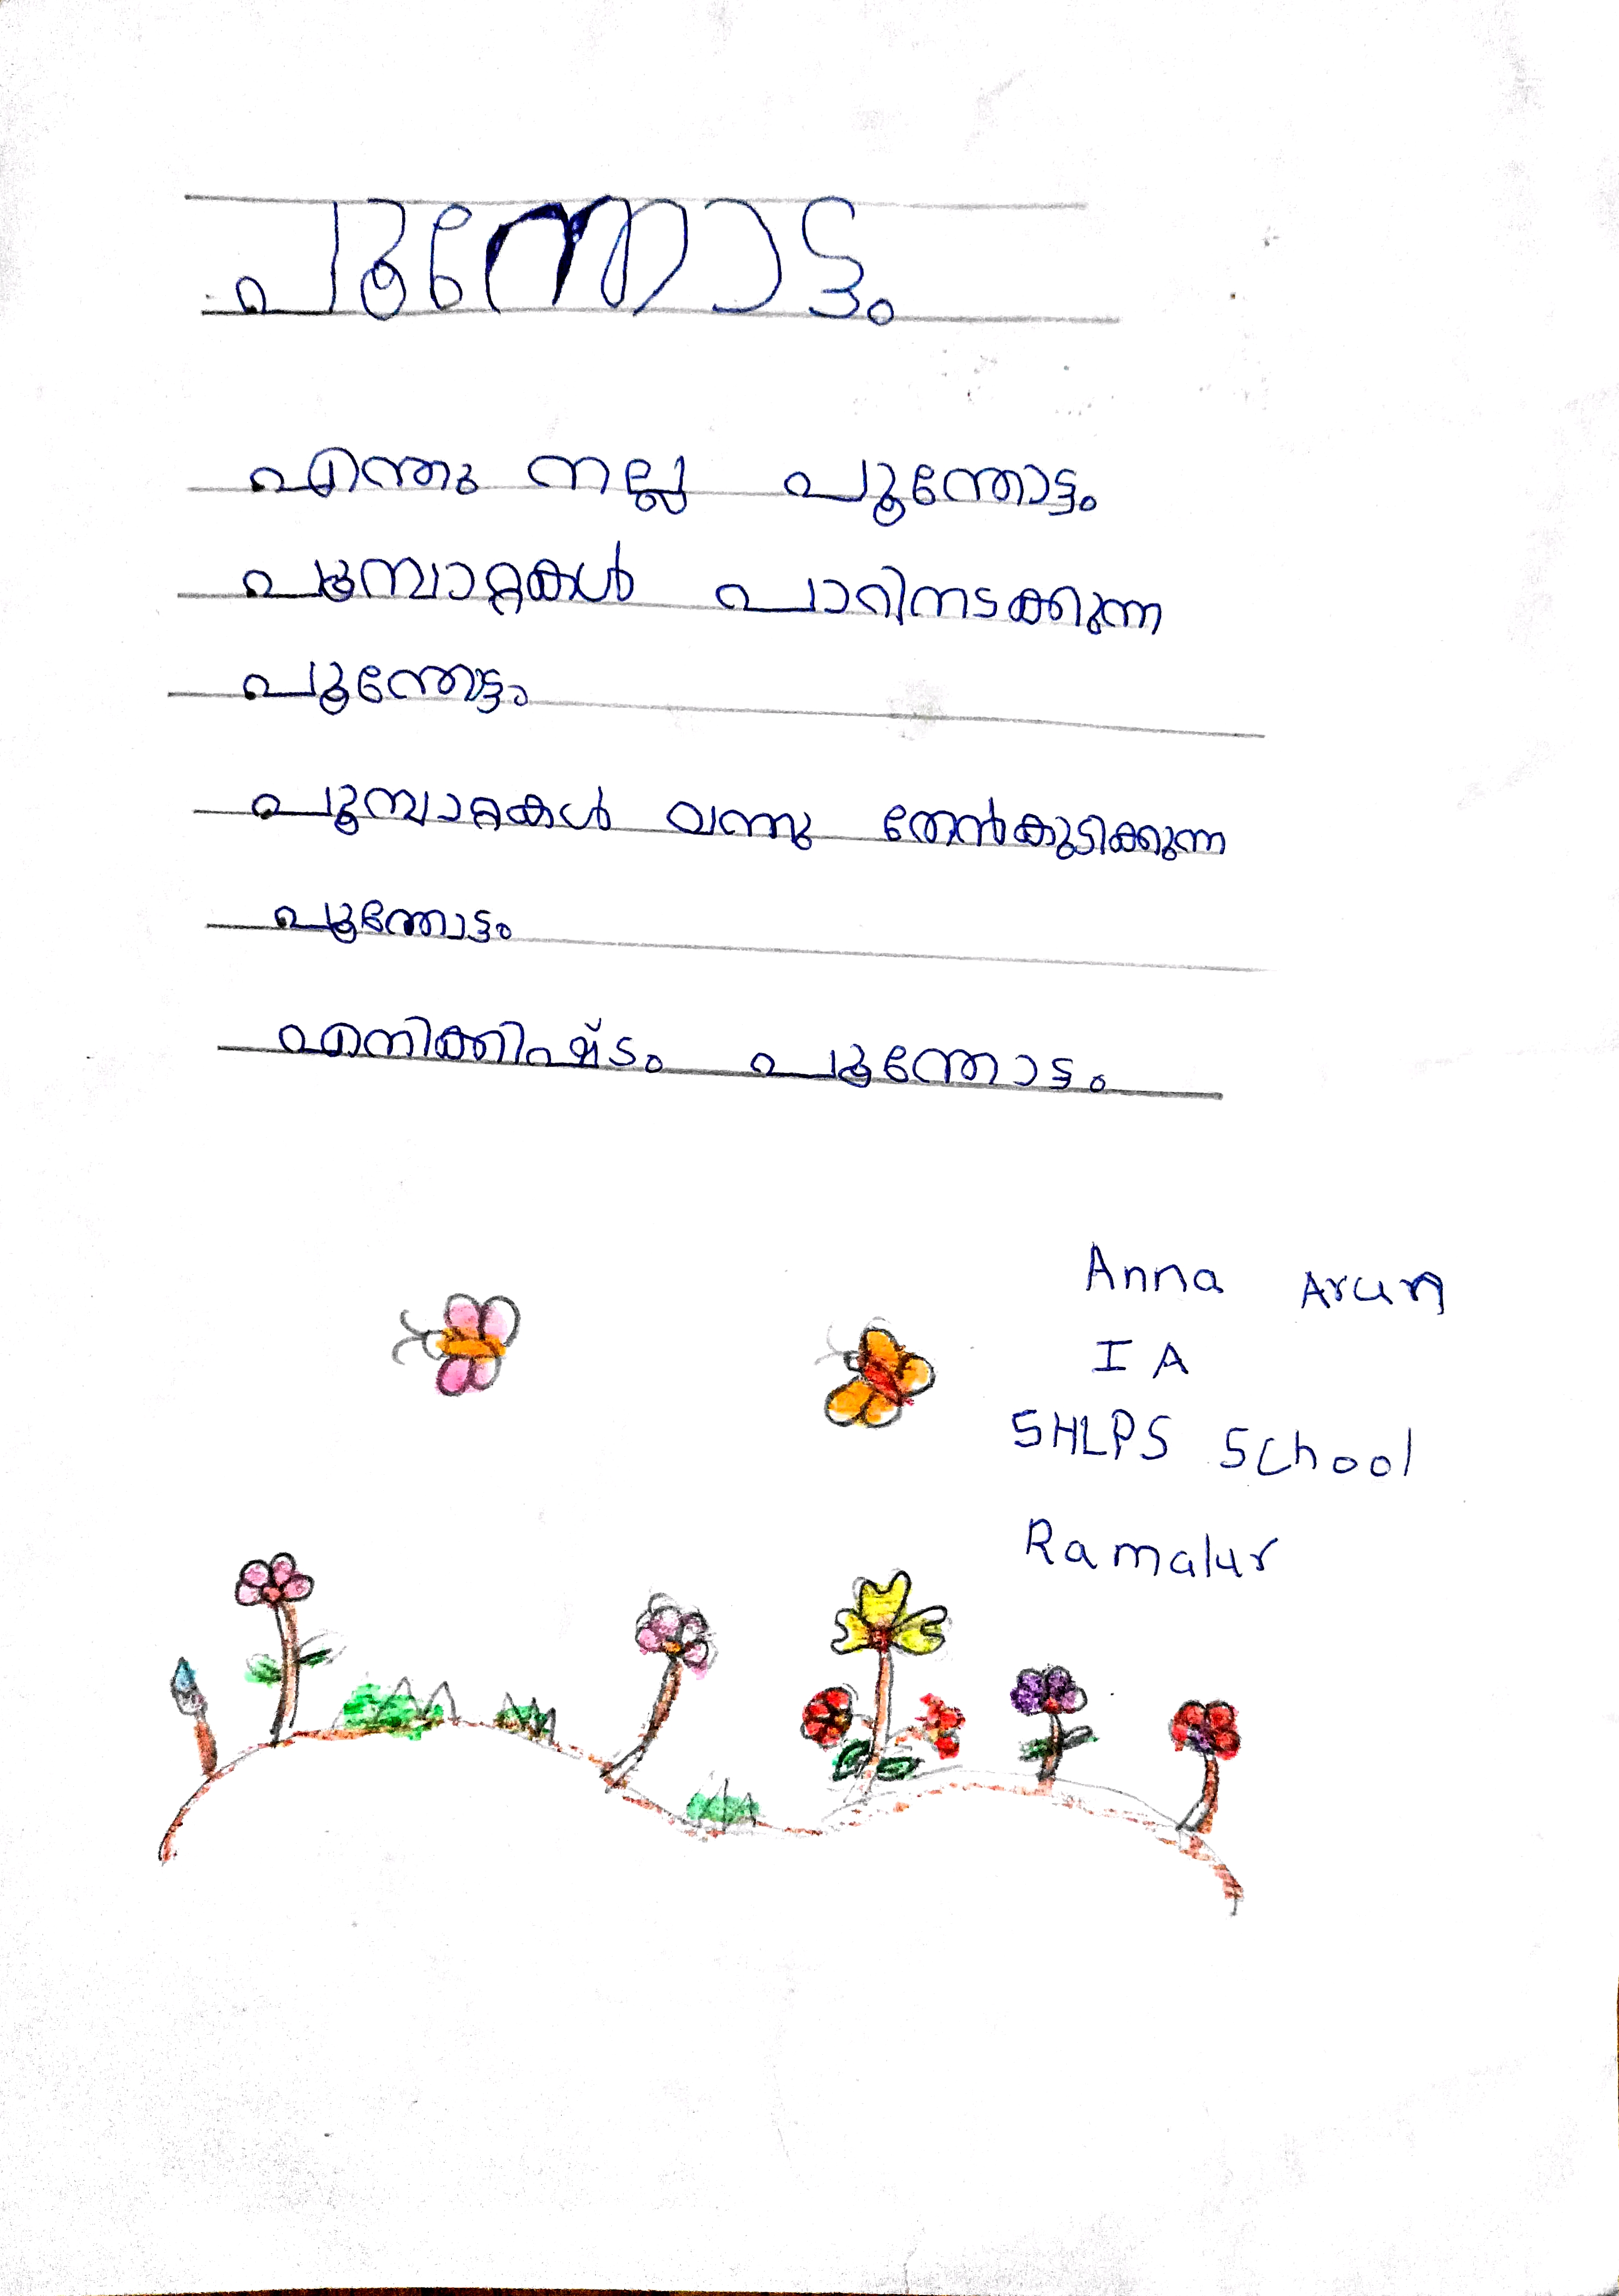 പൂന്തോട്ടം
എന്തു നല്ല പൂന്തോട്ടം
പൂമ്പാറ്റകൾ പാറിനടക്കുന്ന
പൂന്തോട്ടം
പൂമ്പാറ്റകൾ വന്നു തേൻകുടിക്കുന്ന
പൂന്തോട്ടം
എനിക്കിഷ്ടം പൂന്തോട്ടം
Anna Arun
I A
SHLPS School
Ramalur